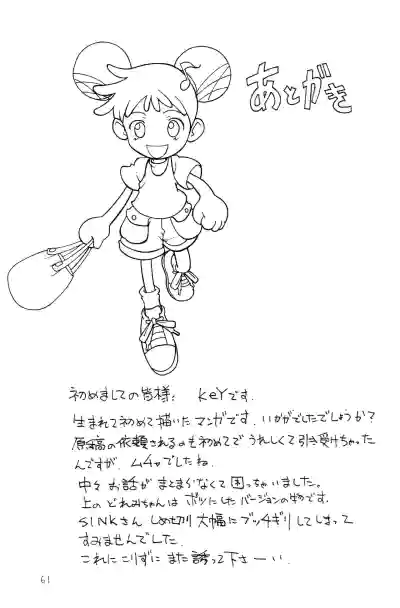 あとがき
初めましての皆様； KeYです．
生まれて初めて描いたマンガです．いかがでしたでしょうか？
原稿の依頼されるのも初めてで うれしくて引き受けちゃった
んですが、ムチャでしたね．
中々 お話が まとまらなくて 困っちゃいました。
上の どれみちゃんは ボツにしたバージョンの物です。
SINKさん しめ切り 大幅に ブッチギリ してしまって
すみませんでした．
これに こりずに また 誘って 下さーい．
61